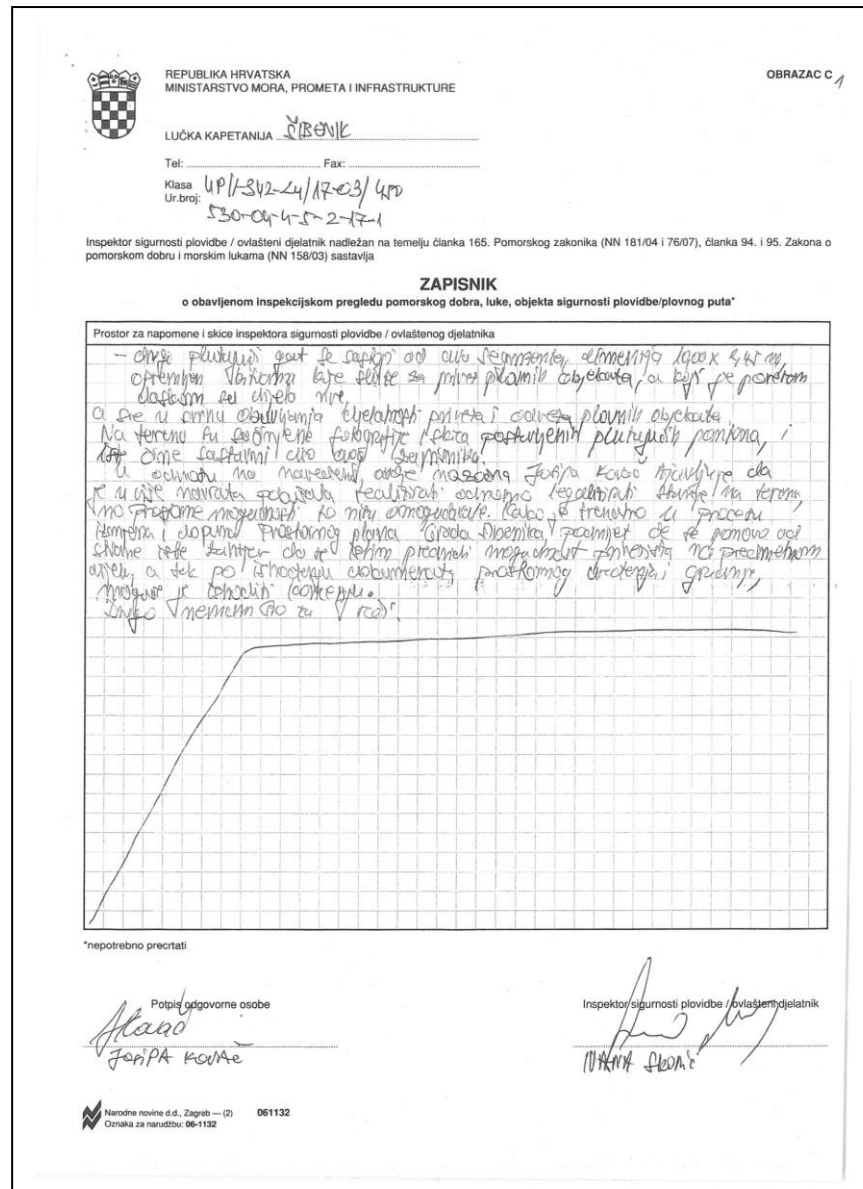 REPUBLIKA HRVATSKA
MINISTARSTVO MORA, PROMETA I INFRASTRUKTURE
OBRAZAC C1
LUČKA KAPETANIJA ŠIBENIK
Tel: Fax:
Klasa UP/I-342-24/17-03/450
Ur.broj: 530-04-4-5-2-17-1
Inspektor sigurnosti plovidbe / ovlašteni djelatnik nadležan na temelju članka 165. Pomorskog zakonika (NN 181/04 i 76/07), članka 94. i 95. Zakona o
pomorskom dobru i morskim lukama (NN 158/03) sastavlja
ZAPISNIK
o obavljenom inspekcijskom pregledu pomorskog dobra, luke, objekta sigurnosti plovidbe/plovnog puta*
Prostor za napomene i skice inspektora sigurnosti plovidbe / ovlaštenog djelatnika
- drugi plutajući gat se sastoji od dva segmenta, dimenzija x 2,45 m,
opremljen koje služe za privez plovnih objekata, a koji je
dijela rive,
a sve u svrhu obavljanja djelatnosti priveza i odveza plovnih objekata
Na terenu su sačinjene fotografije i skica postavljenih plutajućih pontona, i
iste čine sastavni dio ovog zapisnika.
U odnosu na navedeno, ovdje nazočna Josipa Kovač izjavljuje da
je u više navrata pokušala realizirati odnosno legalizirati stanje na terenu,
no mogućnosti to nisu omogućavale. Kako je trenutno u procesu
izmjena i dopuna Prostornog plana Grada Šibenika, podnijet će se ponovo od
strane iste zahtjev da se istim predvidi mogućnost na predmetnom
dijelu, a tek po ishođenju dokumenata prostornog uređenja i gradnje,
moguće je ishoditi koncesiju.
Drugo nemam što za reći.
*nepotrebno precrtati
Potpis odgovorne osobe
Inspektor sigurnosti plovidbe / ovlašteni djelatnik
JOSIPA KOVAČ
IVANA
Narodne novine d.d., Zagreb — (2) 061132
Oznaka za narudžbu: 06-1132